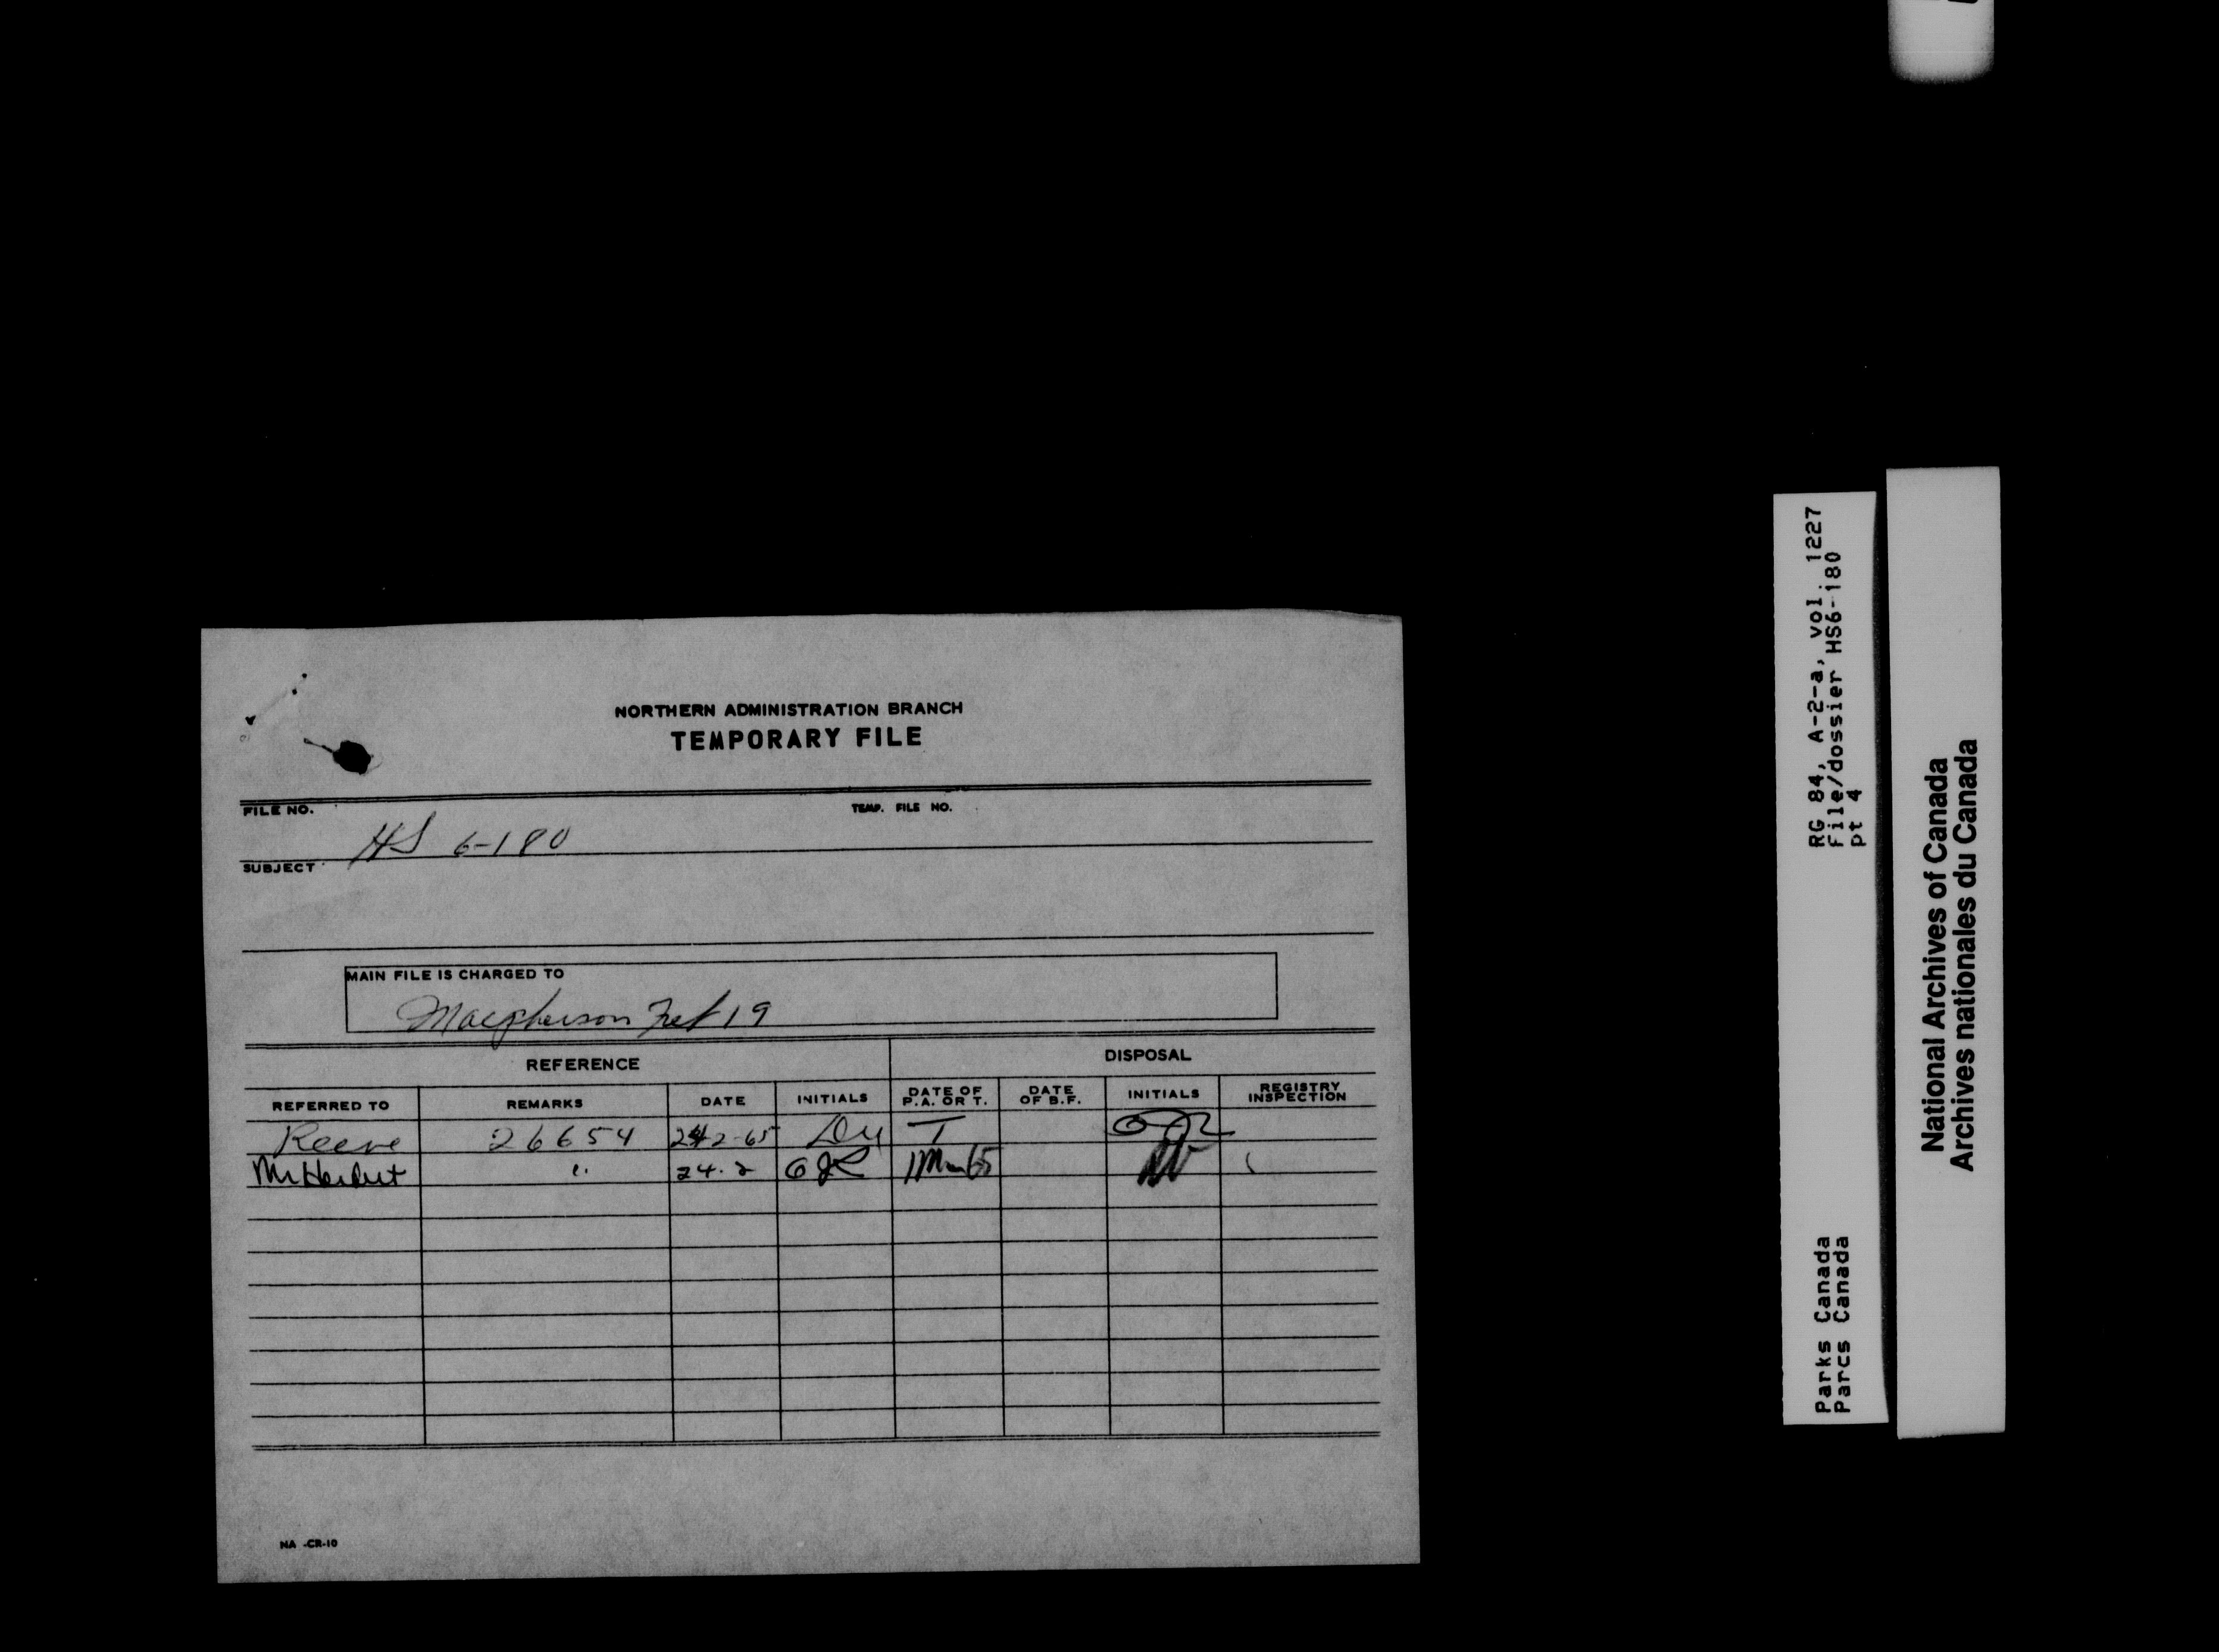 NORTHERN ADMINISTRATION BRANCH
TEMPORARY FILE
FILE NO. TEMP. FILE NO.
HS 6-180
SUBJECT
MAIN FILE IS CHARGED TO
Macpherson Feb 19
REFERENCE DISPOSAL
REFERRED TO REMARKS DATE INITIALS DATE OF P.A. OR T. DATE OF B.F. INITIALS REGISTRY INSPECTION
Reeve 26654 24-2-65 T
Mr Herbert " 24.2 GJR 1 Mar 65
NA -CR-10
RG 84, A-2-a, vol. 1227
File/dossier HS6-180
pt 4
Parks Canada
Parcs Canada
National Archives of Canada
Archives nationales du Canada